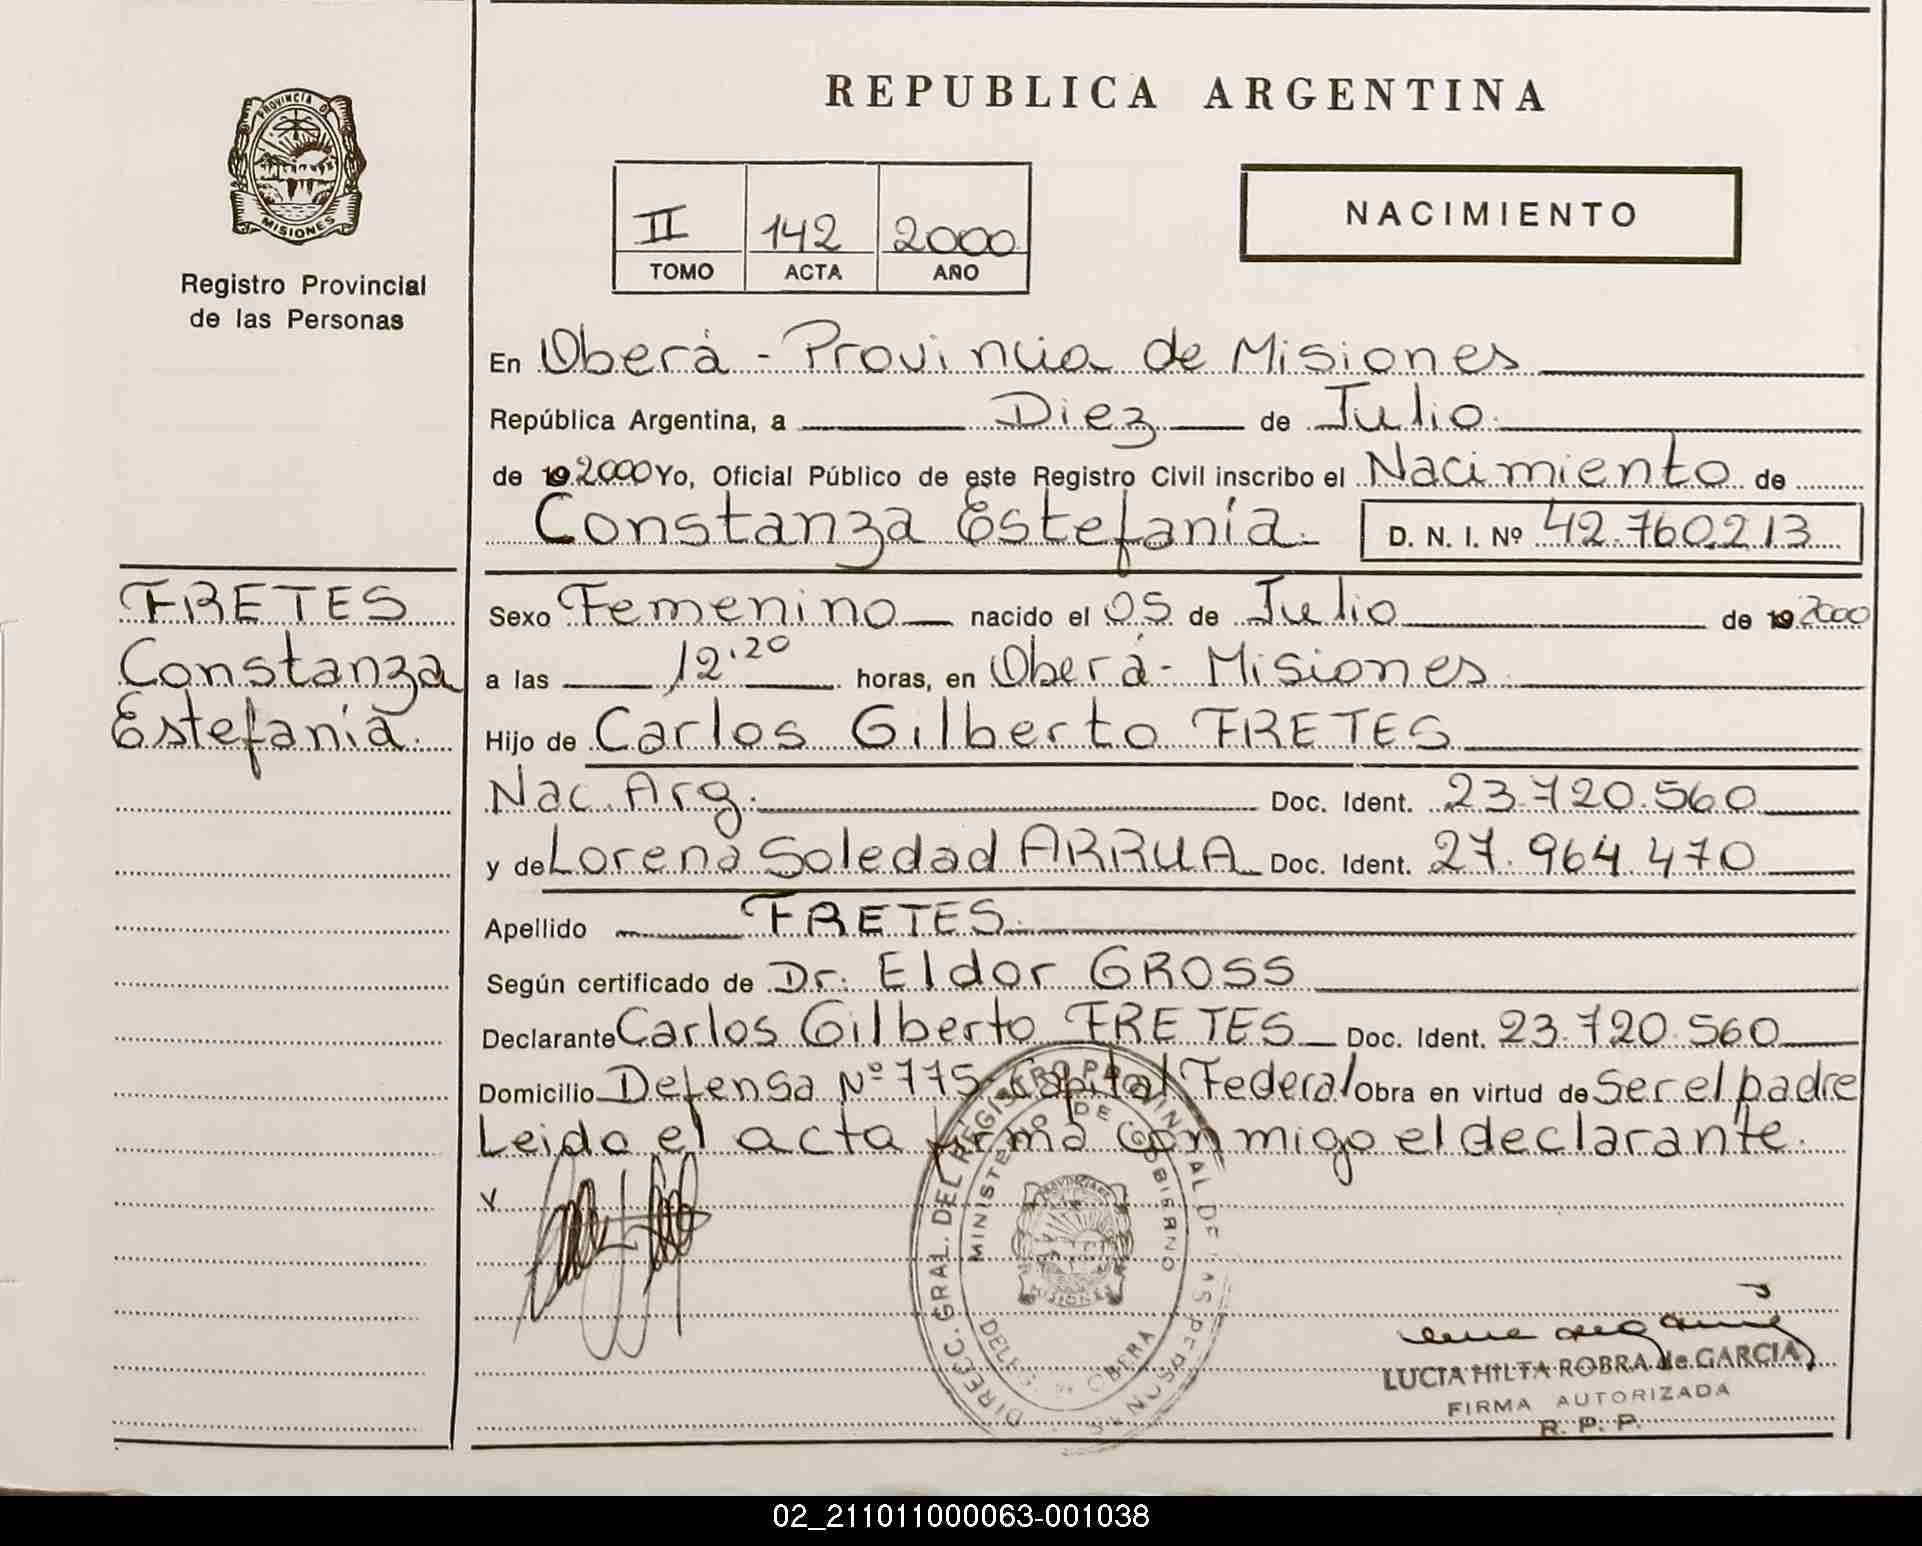 REPUBLICA ARGENTINA
PROVINCIA DE
MISIONES
Registro Provincial
de las Personas
II 142 2000
TOMO ACTA AÑO
NACIMIENTO
En Oberá - Provincia de Misiones
República Argentina, a Diez de Julio
de 19 2000 Yo, Oficial Público de este Registro Civil inscribo el Nacimiento de
Constanza Estefanía. D. N. I. Nº 42.760.213
FRETES
Constanza
Estefanía.
Sexo Femenino nacido el 05 de Julio de 19 2000
a las 12.20 horas, en Oberá - Misiones
Hijo de Carlos Gilberto FRETES
Nac. Arg. Doc. Ident. 23.720.560
y de Lorena Soledad ARRUA Doc. Ident. 27.964.470
Apellido FRETES
Según certificado de Dr. Eldor GROSS
Declarante Carlos Gilberto FRETES Doc. Ident. 23.720.560
Domicilio Defensa Nº 775 - Capital Federal obra en virtud de Ser el padre
Leida el acta firma conmigo el declarante.
DIREC. GRAL. DEL REGISTRO PROVINCIAL DE LAS PERSONAS
MINISTERIO DE GOBIERNO
PROVINCIA DE
MISIONES
DELEG. OBERA
LUCIA HILTA ROBRA de GARCIA
FIRMA AUTORIZADA
R. P. P.
02_211011000063-001038